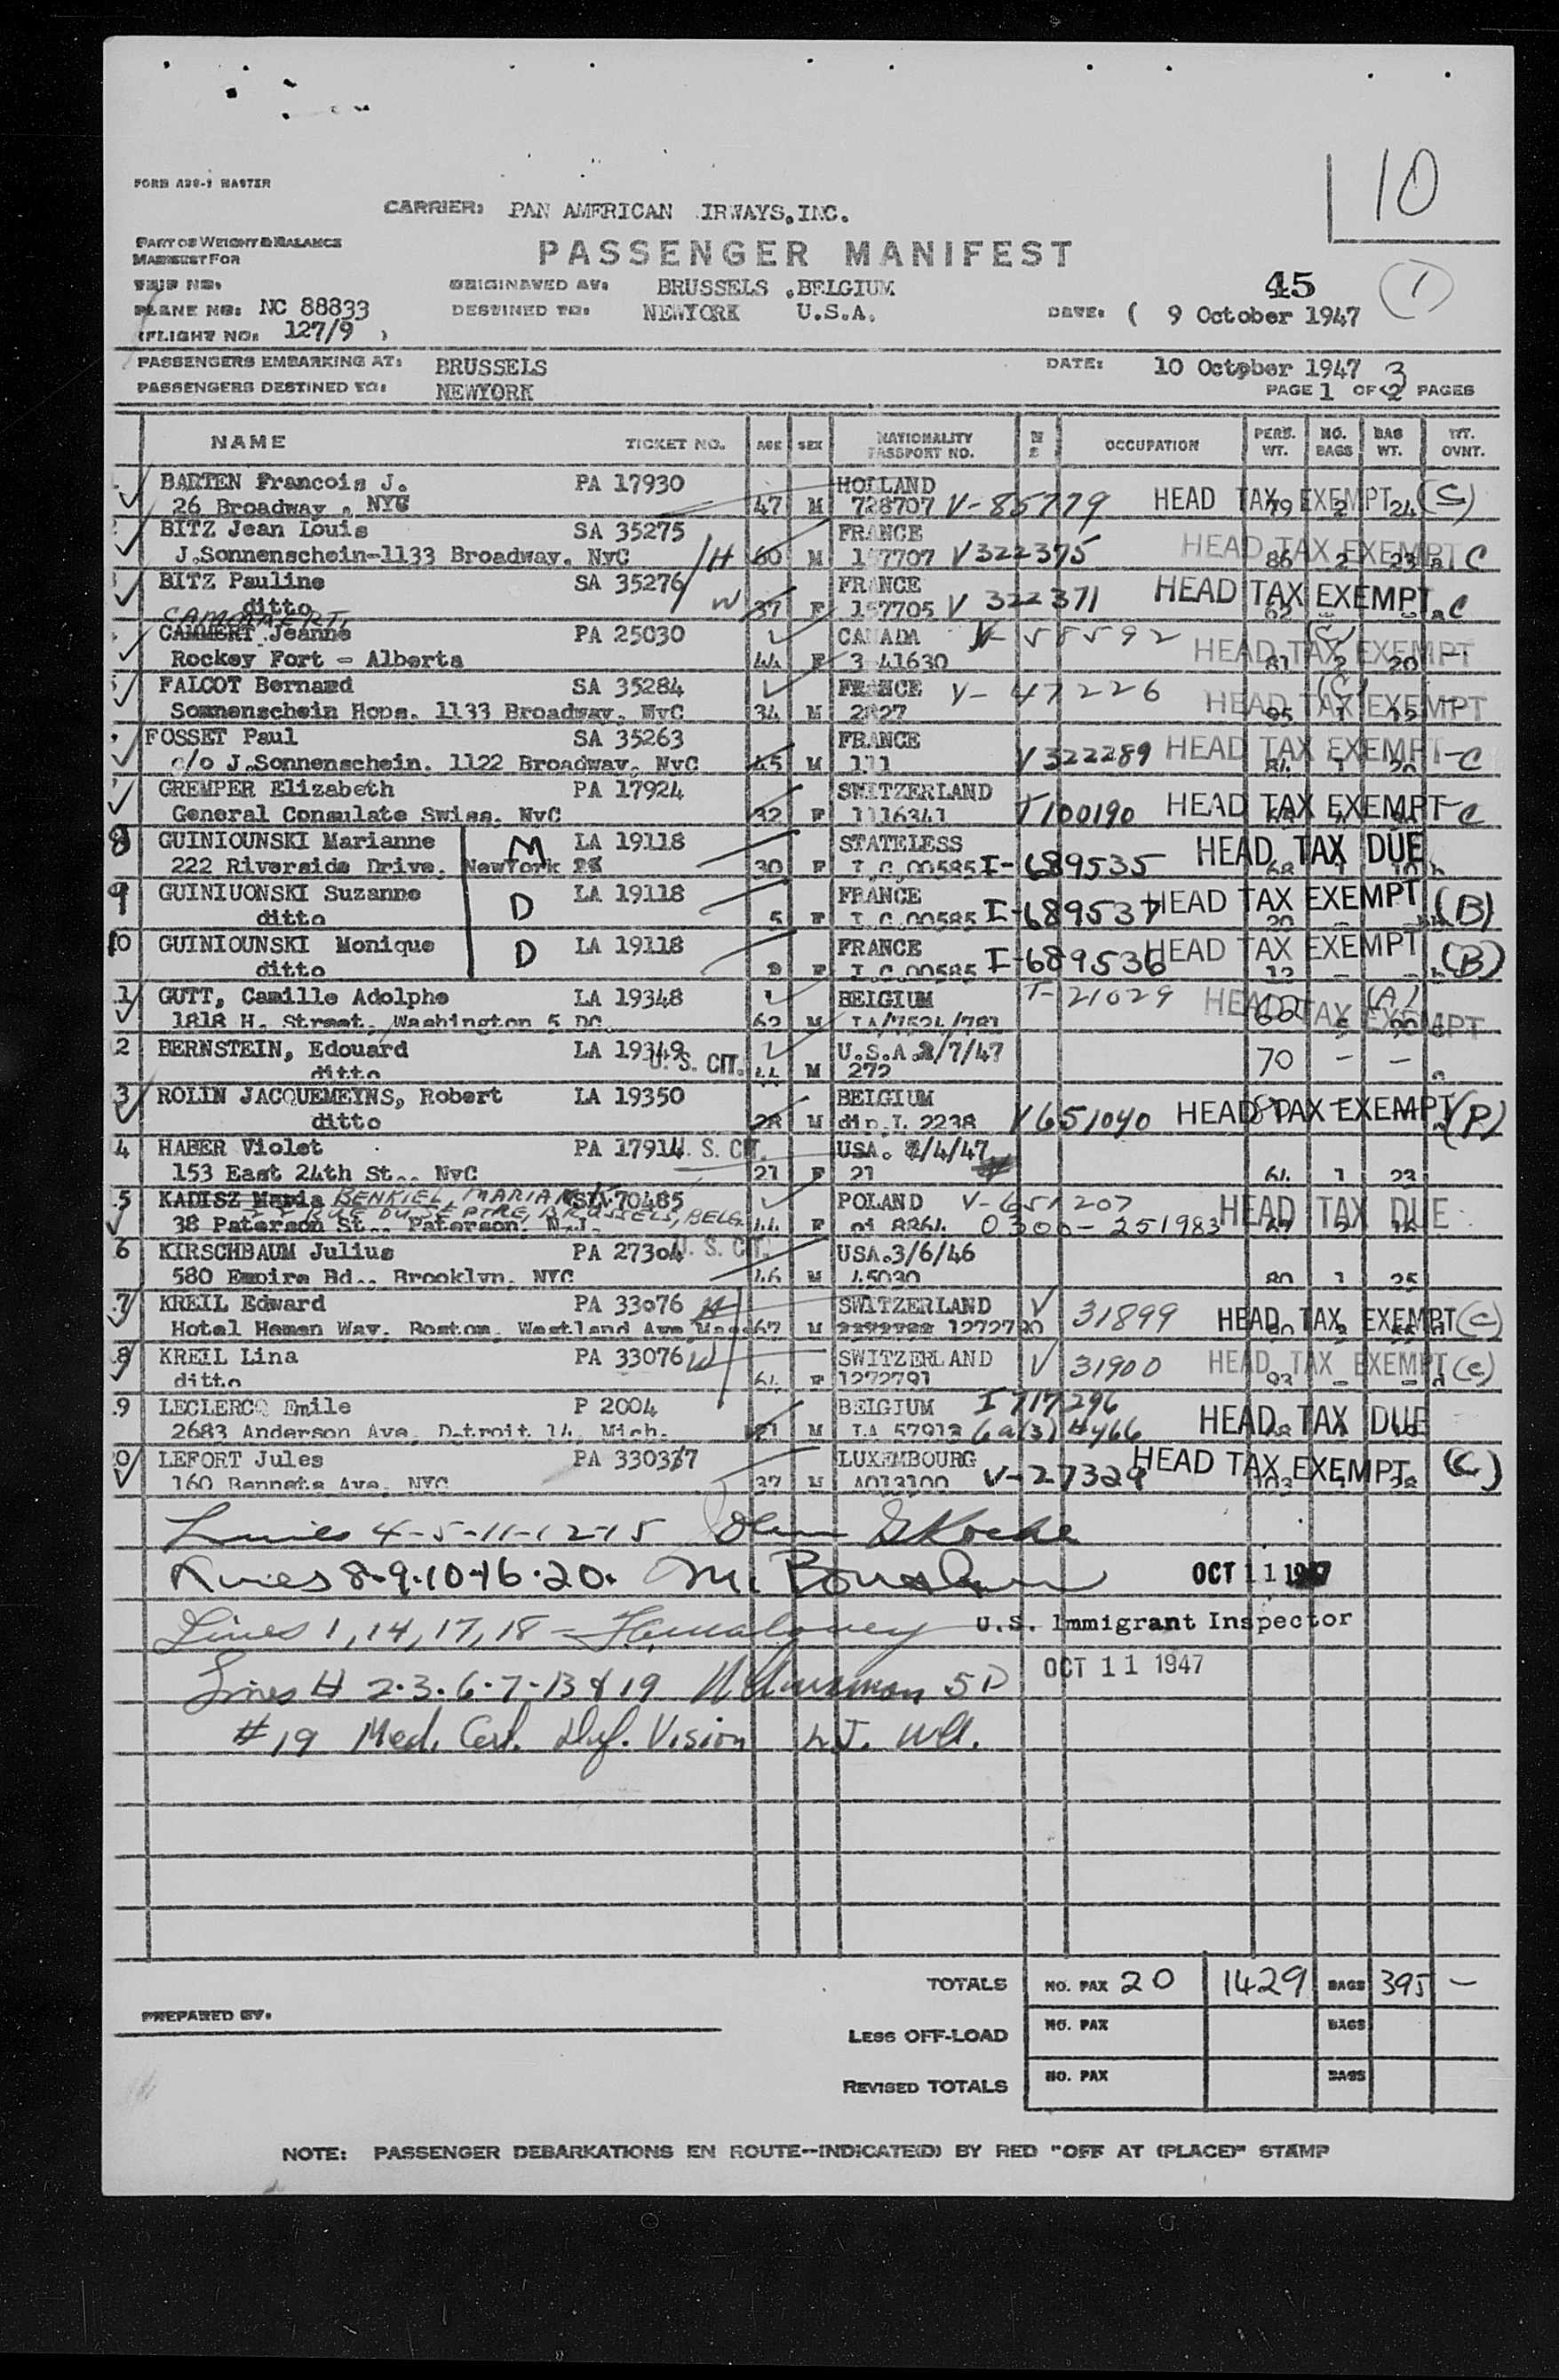 10
FORM A20-1 MASTER
CARRIER: PAN AMERICAN IRWAYS.INC.
PART OF WEIGHT & BALANCE
MANIFEST FOR
PASSENGER MANIFEST
TRIP NO.
ORIGINATED AT: BRUSSELS .BELGIUM
45 1
PLANE NO: NC 88833
DESTINED TO: NEWYORK U.S.A.
DATE: ( 9 October 1947
(FLIGHT NO: 127/9 )
PASSENGERS EMBARKING AT: BRUSSELS
DATE: 10 October 1947
PASSENGERS DESTINED TO: NEWYORK
PAGE 1 OF 2 3 PAGES
NAME TICKET NO. AGE SEX NATIONALITY PASSPORT NO. OCCUPATION PERS. WT. NO. BAGS BAG WT. WT. OVNT.
BARTEN Francois J. PA 17930 HOLLAND
26 Broadway , NYC 47 M 728707 V-85779 HEAD TAX EXEMPT 79 2 24 (C)
BITZ Jean Louis SA 35275 FRANCE
J.Sonnenschein-1133 Broadway. NyC H 60 M 157707 V322375 HEAD TAX EXEMPT 86 2 23 C
BITZ Pauline SA 35276 FRANCE
ditto W 37 F 157705 V 322371 HEAD TAX EXEMPT 62 C
CAMMERT Jeanne PA 25030 CANADA V-58592
Rockey Fort - Alberta 44 F 3 41630 HEAD TAX EXEMPT 81 2 20 (C)
FALCOT Bernard SA 35284 FRANCE V-47226
Sonnenschein Hops. 1133 Broadway. NyC 34 M 2827 HEAD TAX EXEMPT 95 1 12 (C)
FOSSET Paul SA 35263 FRANCE
c/o J.Sonnenschein. 1122 Broadway. NyC 45 M 111 V322289 HEAD TAX EXEMPT 84 1 20 C
GREMPER Elizabeth PA 17924 SWITZERLAND
General Consulate Swiss. NyC 32 F 1116341 T100190 HEAD TAX EXEMPT C
8 GUINIOUNSKI Marianne M LA 19118 STATELESS
222 Riverside Drive. NewYork 25 30 F I.C.00585 I-689535 HEAD TAX DUE 68 1 10
9 GUINIUONSKI Suzanne D LA 19118 FRANCE
ditto 5 F I.C.00585 I-689537 HEAD TAX EXEMPT 20 (B)
10 GUINIOUNSKI Monique D LA 19118 FRANCE
ditto F I.C.00585 I-689536 HEAD TAX EXEMPT 12 (B)
1 GUTT, Camille Adolphe LA 19348 BELGIUM T-21029
1818 H. Street. Washington 5 DC. 62 M LA/7524/781 HEAD TAX EXEMPT (A)
2 BERNSTEIN, Edouard LA 19349 U.S.A.2/7/47
ditto U.S. CIT. 44 M 272 70 - -
3 ROLIN JACQUEMEYNS, Robert LA 19350 BELGIUM
ditto 28 M dip.L 2238 V651040 HEAD TAX EXEMPT (P)
4 HABER Violet PA 17914 U. S. CIT. USA. 2/4/47
153 East 24th St.. NyC 21 F 21 64 1 23
5 KADISZ Maria BENKIEL, MARIA SA 70485 POLAND V-651207
38 Paterson St.. Paterson. N.J. BRUSSELS, BELG. 44 F oi 8264 0300-251983 HEAD TAX DUE 67 2
6 KIRSCHBAUM Julius PA 27304 U. S. CIT. USA.3/6/46
580 Empire Bd.. Brooklyn. NYC 46 M 45030 80 1 25
7 KREIL Edward PA 33076 H SWITZERLAND V 31899
Hotel Hemen Way. Boston. Westland Ave Mass 67 M 1272790 HEAD TAX EXEMPT (C)
8 KREIL Lina PA 33076 W SWITZERLAND V 31900
ditto 64 F 1272791 HEAD TAX EXEMPT 93 (C)
9 LECLERCQ Emile P 2004 BELGIUM I 717296
2683 Anderson Ave. Detroit 14. Mich. 21 M LA 57913 6a(3) #466 HEAD TAX DUE
0 LEFORT Jules PA 330337 LUXEMBOURG
160 Bennets Ave. NYC 37 M A013100 V-27329 HEAD TAX EXEMPT 103 28 (C)
Lines 4-5-11-12-15
Lines 8-9-10-16-20. OCT 11 1947
Lines 1, 14, 17, 18 - U.S. Immigrant Inspector
OCT 11 1947
Lines # 2-3-6-7-13 & 19
#19 Med. Cert. Def. Vision
TOTALS NO. PAX 20 1429 BAGS 395 -
PREPARED BY.
LESS OFF-LOAD NO. PAX BAGS
REVISED TOTALS NO. PAX BAGS
NOTE: PASSENGER DEBARKATIONS EN ROUTE--INDICATE(D) BY RED "OFF AT (PLACE)" STAMP